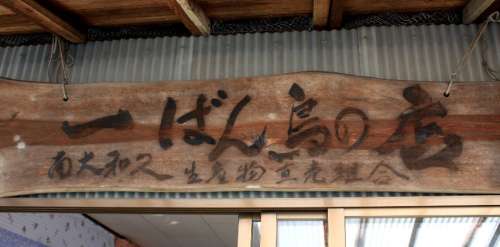 一ばん鳥の店
南大和久 生産物直売組合